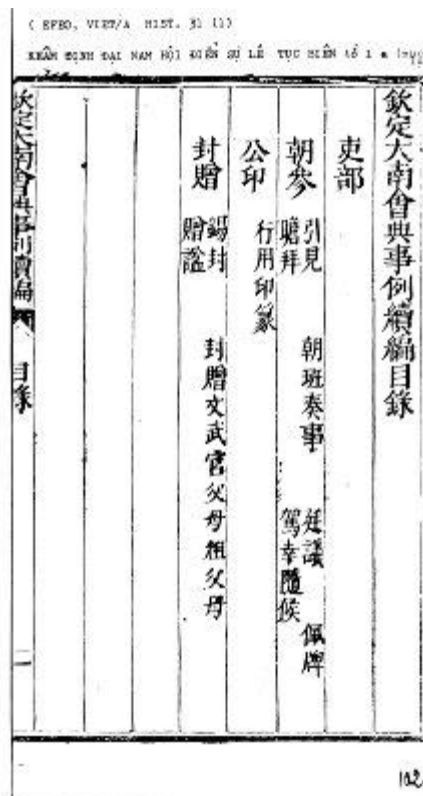 ( EFEO, VIET/A HIST. 31 (1)
KHÂM ĐỊNH ĐẠI NAM HỘI ĐIỂN SỰ LỆ TỤC BIÊN
欽定大南會典事例續編目錄
吏部
朝參 引見 瞻拜 朝班奏事 廷議 駕幸隨候 佩牌
公印 行用印篆
封贈 錫封 贈諡 封贈文武官父母祖父母
欽定大南會典事例續編 目錄 二
102